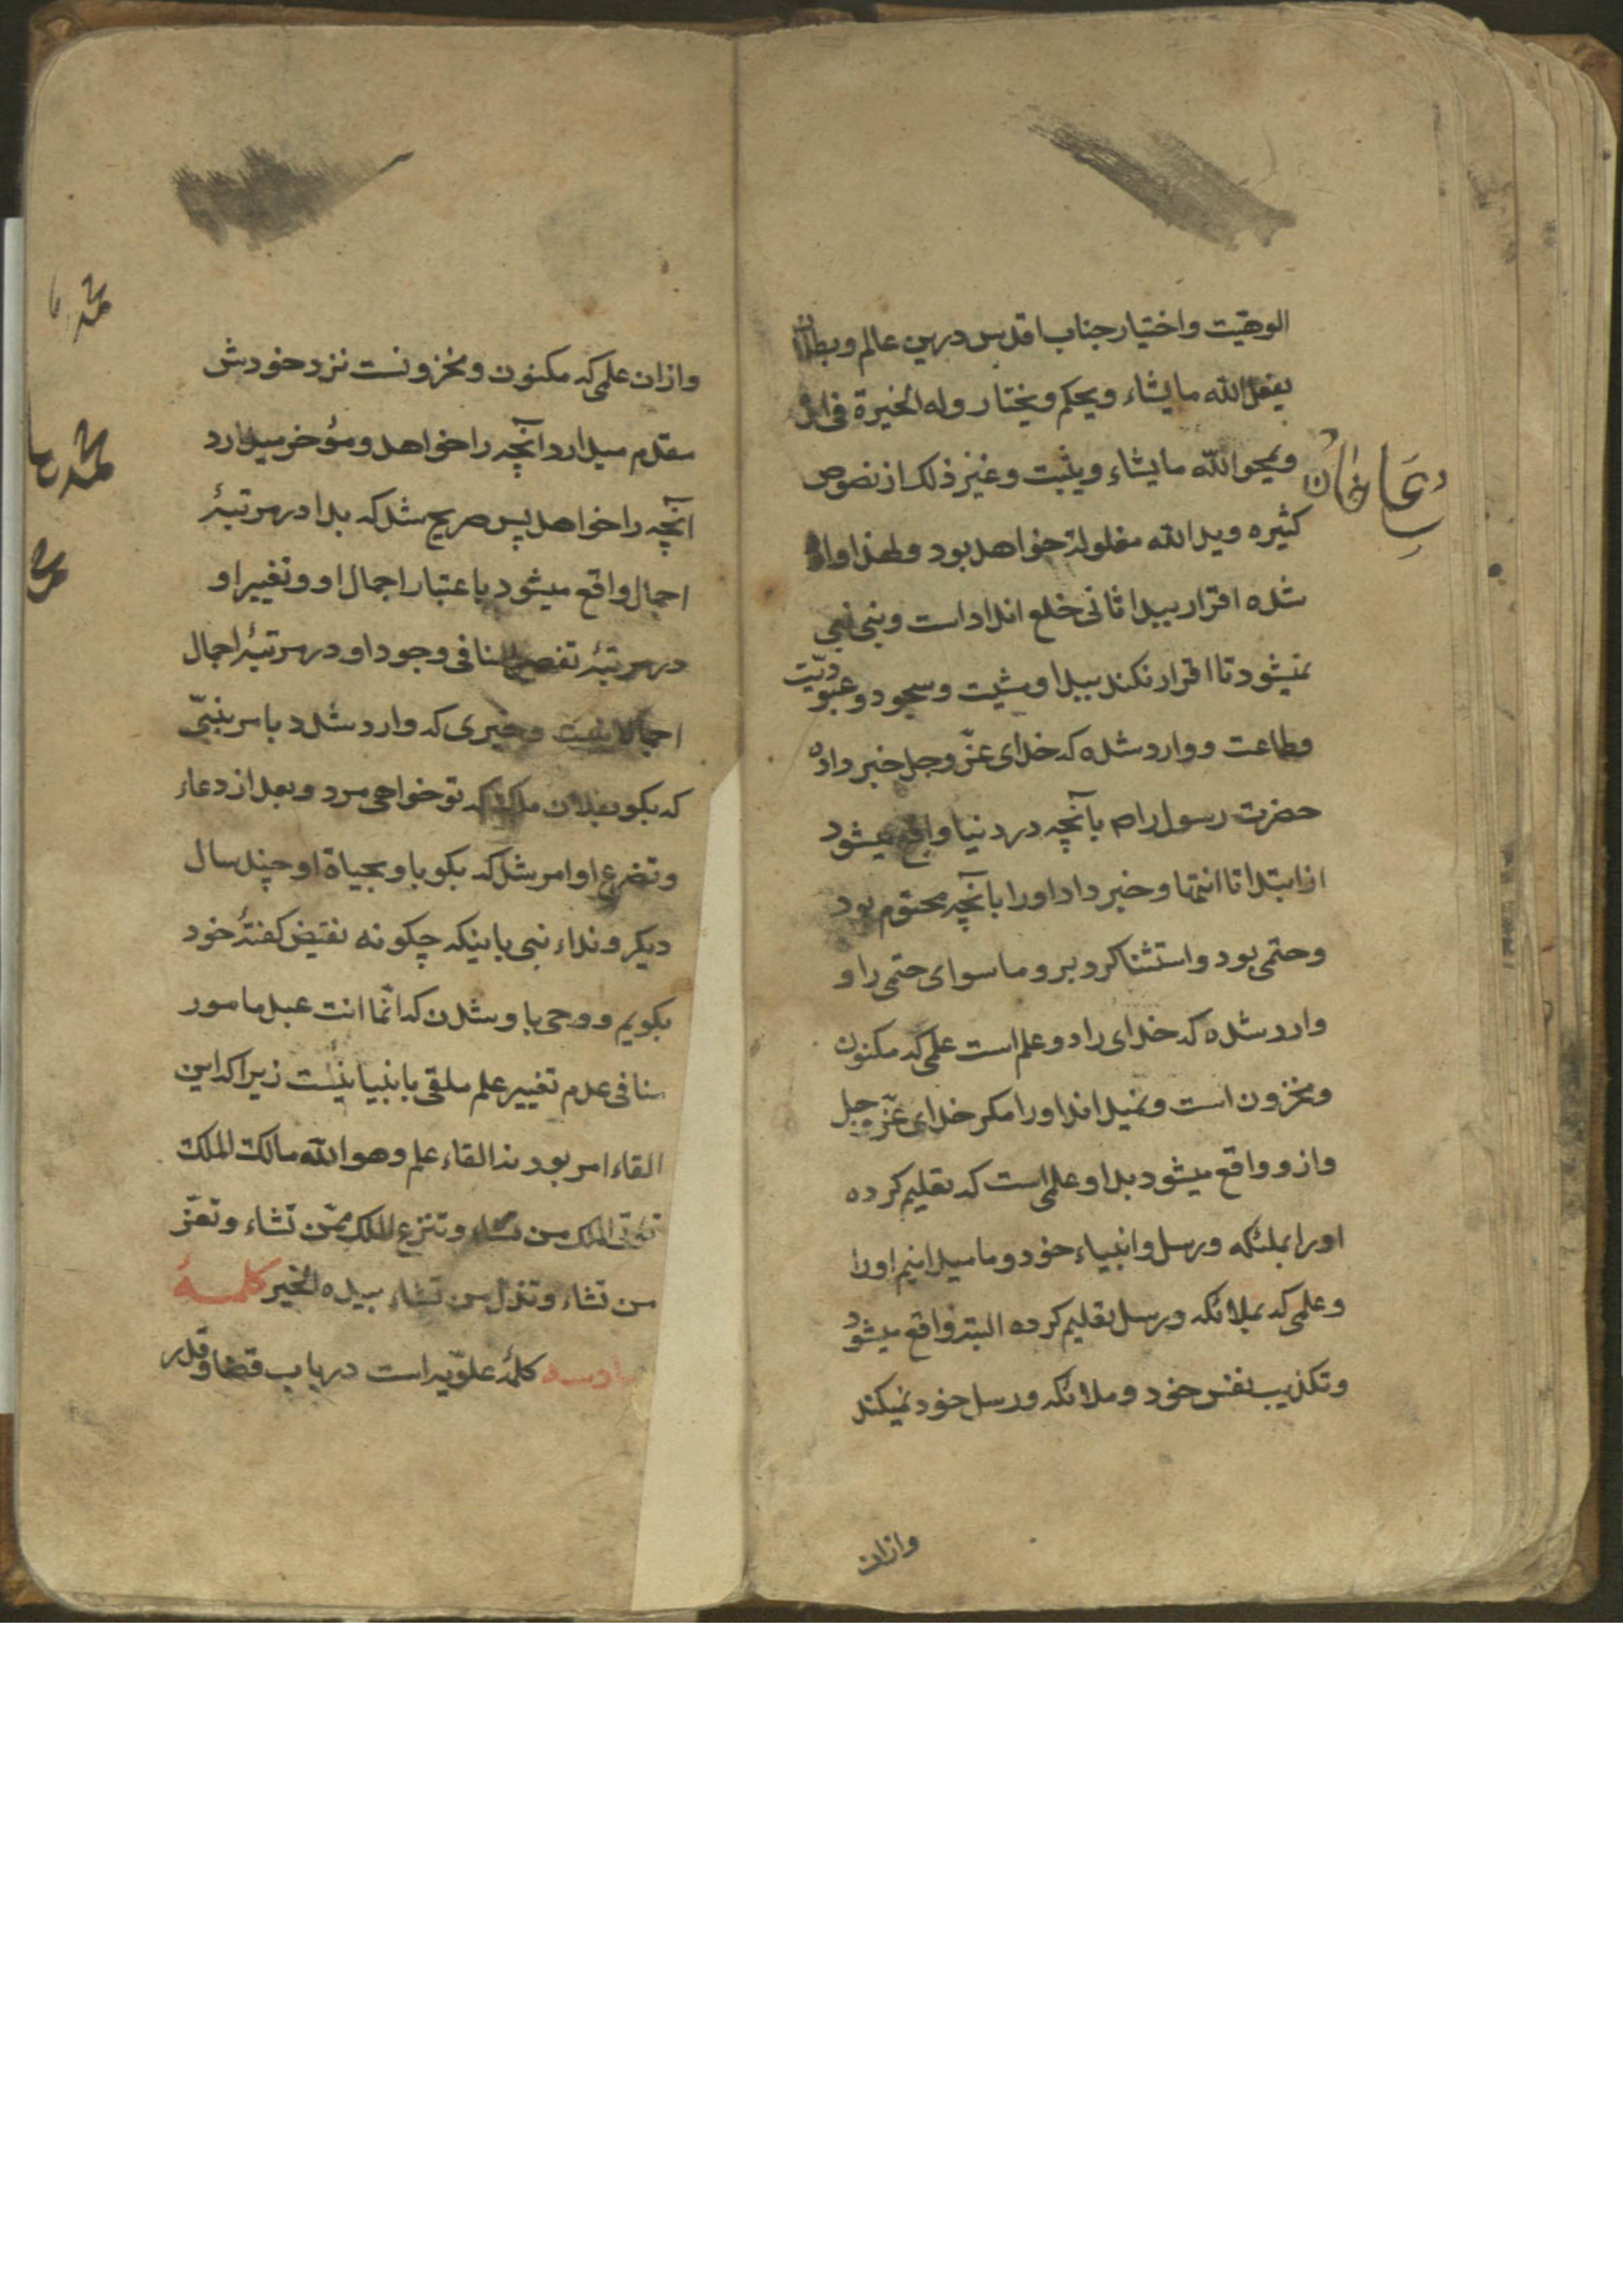 الوهیّت واختیار جناب اقدس درین عالم وبطلان
یفعل الله ما یشاء ویحکم ویختار وله الخیرة فی امره
ویمحو الله ما یشاء ویثبت وغیر ذلک از نصوص
کثیره وید الله مغلوله خواهد بود ولهذا وارد
شده اقرار ببدا ثانی خلع انداد است ونبی نبی
نمیشود تا اقرار نکند ببدا ومشیت وسجود وعبودیّت
وطاعت ووارد شده که خدای عزّ وجل خبر داده
حضرت رسول را ص بآنچه در دنیا واقع میشود
از ابتدا تا انتها وخبر داد اورا بآنچه محتوم بود
وحتمی بود واستثنا کرد برو ما سوای حتمی را و
وارد شده که خدای را دو علم است علمی که مکنون
ومخزون است ونمیداند اورا مکر خدای عزّ وجل
وازو واقع میشود بدا وعلمی است که تعلیم کرده
اورا بملئکه ورسل وانبیاء خود وما میدانیم اورا
وعلمی که بملائکه ورسل تعلیم کرده البته واقع میشود
وتکذیب نفس خود وملائکه ورسل خود نمیکند
وازان
وازان علمی که مکنون ومخزونست نزد خودش
مقدم میدارد آنچه را خواهد ومؤخر میدارد
آنچه را خواهد پس صریح شد که بدا در مرتبهٔ
اجمال واقع میشود باعتبار اجمال او وتغییر او
در مرتبهٔ تفصیل منافی وجود او در مرتبهٔ اجمال
اجمالا نیست وخبری که وارد شد د بامر بنبیّ
که بکو بفلان ملک که تو خواهی مرد وبعد از دعاء
وتضرع او امر شد که بکو باو بحیاة او چند سال
دیکر ونداء نبی باینکه چکونه نقیض کفتهٔ خود
بکویم ووحی باو شدن که انّما انت عبد مامور
منافی عدم تغییر علم ملقی بانبیا نیست زیرا که این
القاء امر بود نه القاء علم وهو الله مالک الملک
تؤتی الملک من تشاء وتنزع الملک ممّن تشاء وتعزّ
من تشاء وتذل من تشاء بیده الخیر کلمهٔ
سادسه کلمهٔ علویّه است در باب قضا وقدر